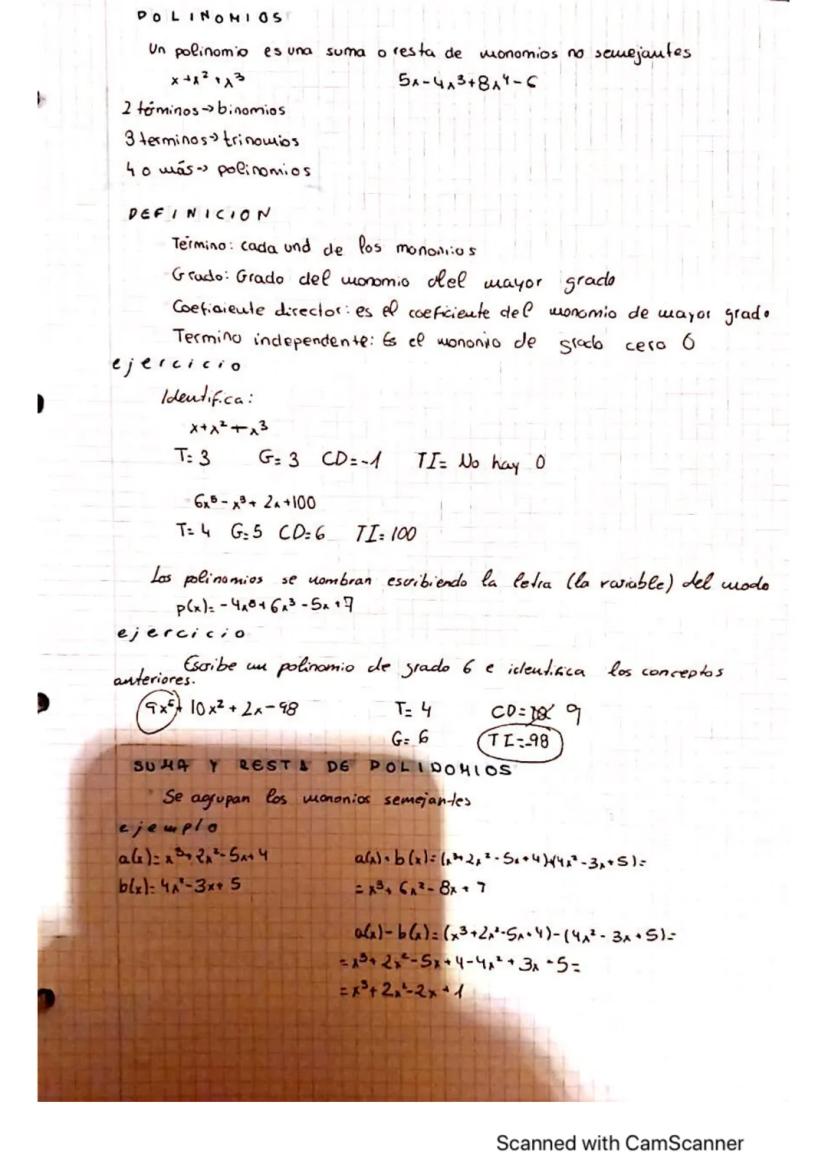 POLINOMIOS
Un polinomio es una suma o resta de monomios no semejantes
x+x²+x³ 5x-4x³+8x⁴-6
2 términos→binomios
3 terminos→trinomios
4 o más→ polinomios
DEFINICION
Término: cada und de los monomios
Grado: Grado del monomio del mayor grado
Coeficiente director: es el coeficiente del monomio de mayor grado
Termino independente: Es el monomio de grado cero 0
ejercicio
Identifica:
x+x²+x³
T= 3 G= 3 CD=-1 TI= No hay 0
6x⁵-x³+2x+100
T= 4 G=5 CD=6 TI=100
Los polinomios se nombran escribiendo la letra (la variable) del modo
p(x)=-4x⁵+6x³-5x+7
ejercicio
Escribe un polinomio de grado 6 e identifica los conceptos
anteriores.
9x⁶+10x²+2x-98 T= 4 CD= 9
G= 6 TI=-98
SUMA Y RESTA DE POLINOMIOS
Se agrupan los monomios semejantes
ejemplo
a(x)=x³+2x²-5x+4 a(x)+b(x)=(x³+2x²-5x+4)+(4x²-3x+5)=
b(x)=4x²-3x+5 =x³+6x²-8x+7
a(x)-b(x)=(x³+2x²-5x+4)-(4x²-3x+5)=
=x³+2x²-5x+4-4x²+3x-5=
=x³+2x²-2x+1
Scanned with CamScanner